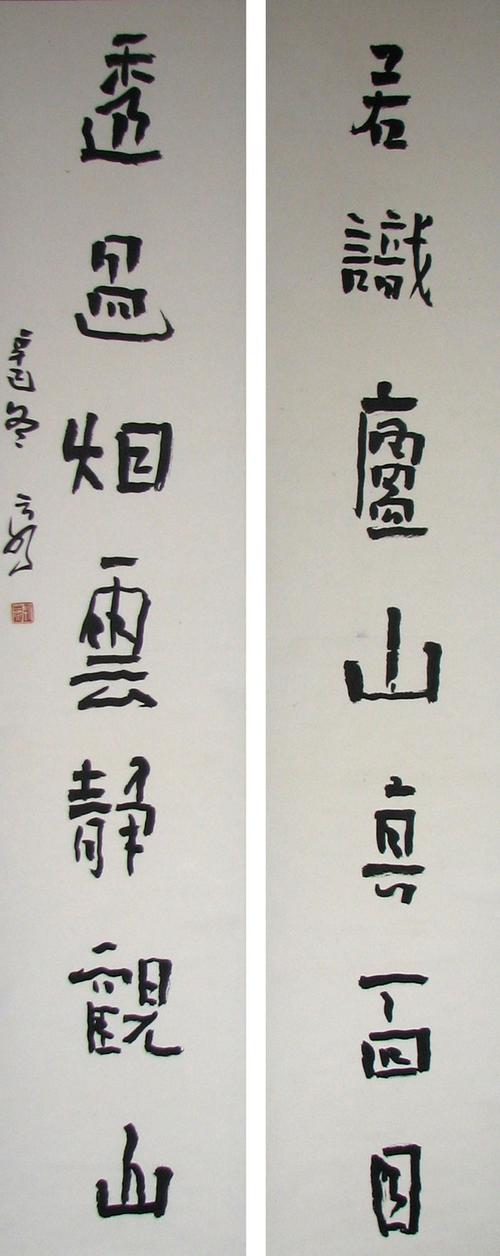 若識廬山真面目
透過烟雲靜觀山
辛巳冬